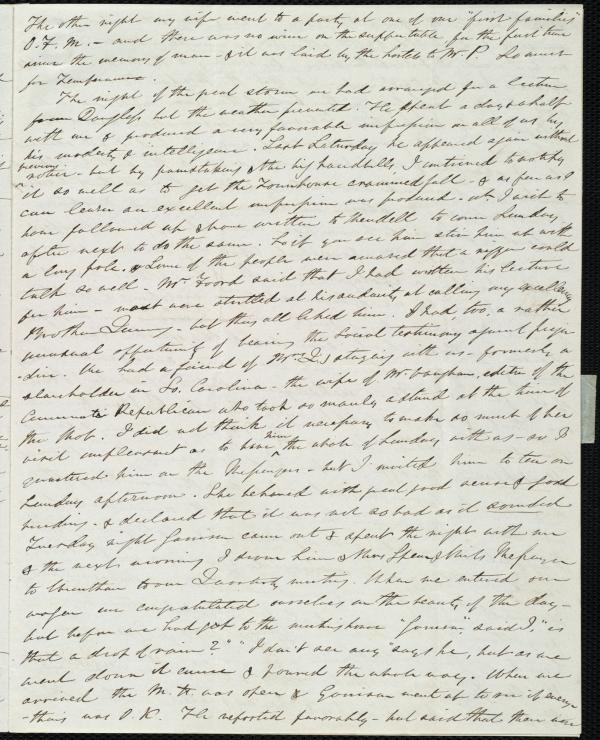 The other night my wife went to a party at one of our "first families"
O. F. M. – and there was no wine on the supper table, for the first time
since the memory of man – & it was laid by the hostess to Mr P. So much
for Temperance.
The night of the great storm we had arranged for a lecture
from Douglass but the weather prevented. He spent a day & a half
with me & produced a very favorable impression on all of us by
his modesty & intelligence. Last Saturday he appeared again without
previous
notice – but by painstaking & the big handbills, I contrived to notify
it so well as to get the Townhouse crammed full – & as far as I
can learn an excellent impression was produced – wh. I wish to
have followed up & have written to Wendell to come Sunday
after next to do the same. So if you see him stir him up with
a long pole. Some of the people were amazed that a nigger could
talk so well – Mr. Foord said that I had written his lecture
for him – most were startled at his audacity at calling my excellency
Brother Quincy – but they all liked him. I had too, a rather
unusual opportunity of bearing the Social testimony against preju-
dice. We had a friend of Mrs Q's staying with us – formerly a
slaveholder in So. Carolina – the wife of Mr Vaughan, editor of the
Cincinnati Republican who took so manly a stand at the time of
the Mob. I did not think it necessary to make so much of her
visit unpleasant as to have him the whole of Sunday with us – so I
quartered him on the – but I invited him to tea on
Sunday afternoon. She behaved with great good sense & good
breeding – & declared that it was not so bad as it sounded
Tuesday night Garrison came out & spent the night with me
& the next morning I drove him & Miss
to to our Quarterly meeting. When we entered our
wagon we congratulated ourselves on the beauty of the day –
but before we had got to the meetinghouse "Garrison", said I, "is
that a drop of rain?" "I don't see any" says he, but as we
went down it came & poured the whole way. When we
arrived the M. H. was open & Garrison went up to see if every-
thing was O. K. He reported favorably – but said that there were